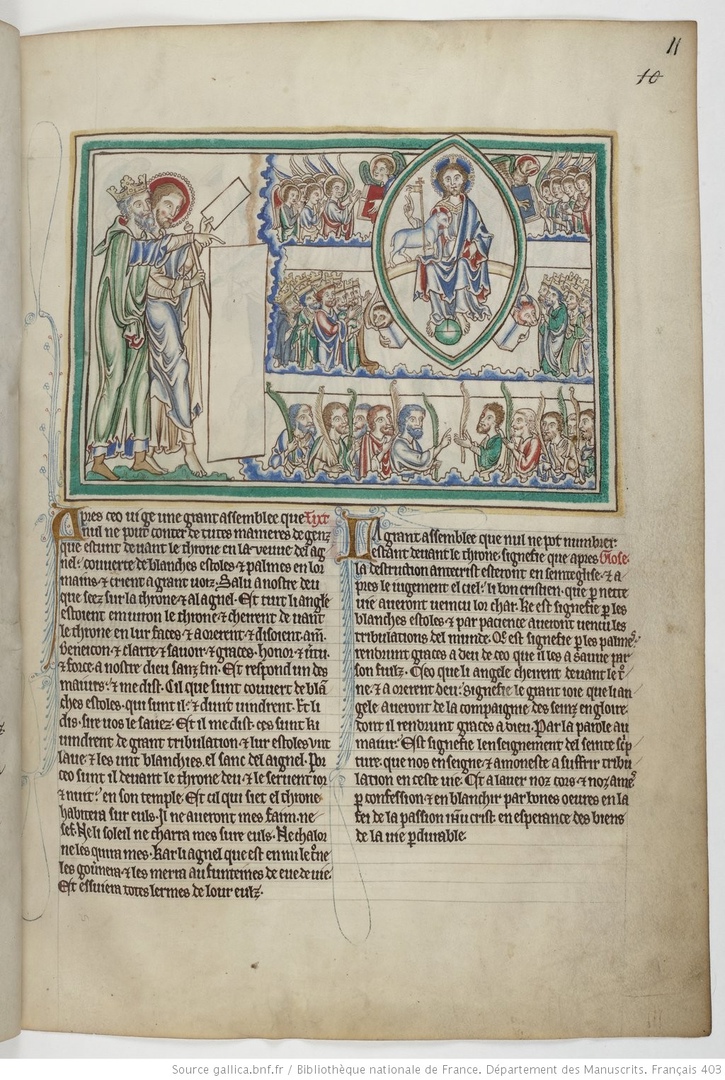 11
10
Apres ceo vi ge une grant assemblee que Tixt
nul ne pout conter de tutes maneres de genz
que estunt devant le throne en la veuue del ag
nel: couverte de blanches estoles & palmes en lor
mains & crient a grant voiz. Salu a nostre deu
que seez sur la throne & al agnel. Et tuit li angle
estoient en viron le throne & cheirent devant
le throne en lur faces & a orerent & disoient am.
Beneicon & clarte & savoir & graces. honor & vtu
& force a nostre dieu sanz fin. Et respond un des
maiurs: & me dist. Cil que sunt couvert de blā
ches estoles. qui sunt il: & dunt vindrent. Et li
dis. sire vos le savez. Et il me dist. ces sunt ki
vindrent de grant tribulation & lur estoles unt
lave & les unt blanchies. el sanc del aignel. Por
ceo sunt il devant le throne deu & le servent ior
& nuit: en son temple. Et cil qui siet el throne
habitera sur euls. Il ne averont mes faim. ne
sef. Ne li soleil ne charra mes sure euls. Ne chalor
ne les quira mes. Kar li agnel que est en mi le t̄ne
les gov̄nera & les merra au funtemes de eue de vie.
Et essuiera totes lermes de lour eulz.
La grant assemblee que nul ne pot numbrer
estant devant le throne. signefie que apres Glose.
la destrution antecrist esteront en seinteglise. & a
pres le iugement el ciel: li bon cristien. que p nette
vie averont vencu lor char. Ke est signefie p les
blanches estoles. & par pacience averont vencu les
tribulations del munde. Qe est signefie p les palmes:
rendrunt graces a deu de ceo que il les a sauve par
son fiulz. Ceo que li angele cheirent devant le t̄
ne. & a orerent deu: signefie le grant ioie que li an
gele averont de la compaignie des seinz en gloire.
dont il rendrunt graces a dieu. Par la parole au
maiur: Est signefie lenseignement del seinte sc̄p
ture. que nos enseigne & amoneste a suffrir tribu
lation en ceste vie. Et a laver noz cors & noz ame
p confession & en blanchir par bones oeures en la
fei de la passion ihū crist. en esperance des biens
de la vie pdurable.
Source gallica.bnf.fr / Bibliothèque nationale de France. Département des Manuscrits. Français 403